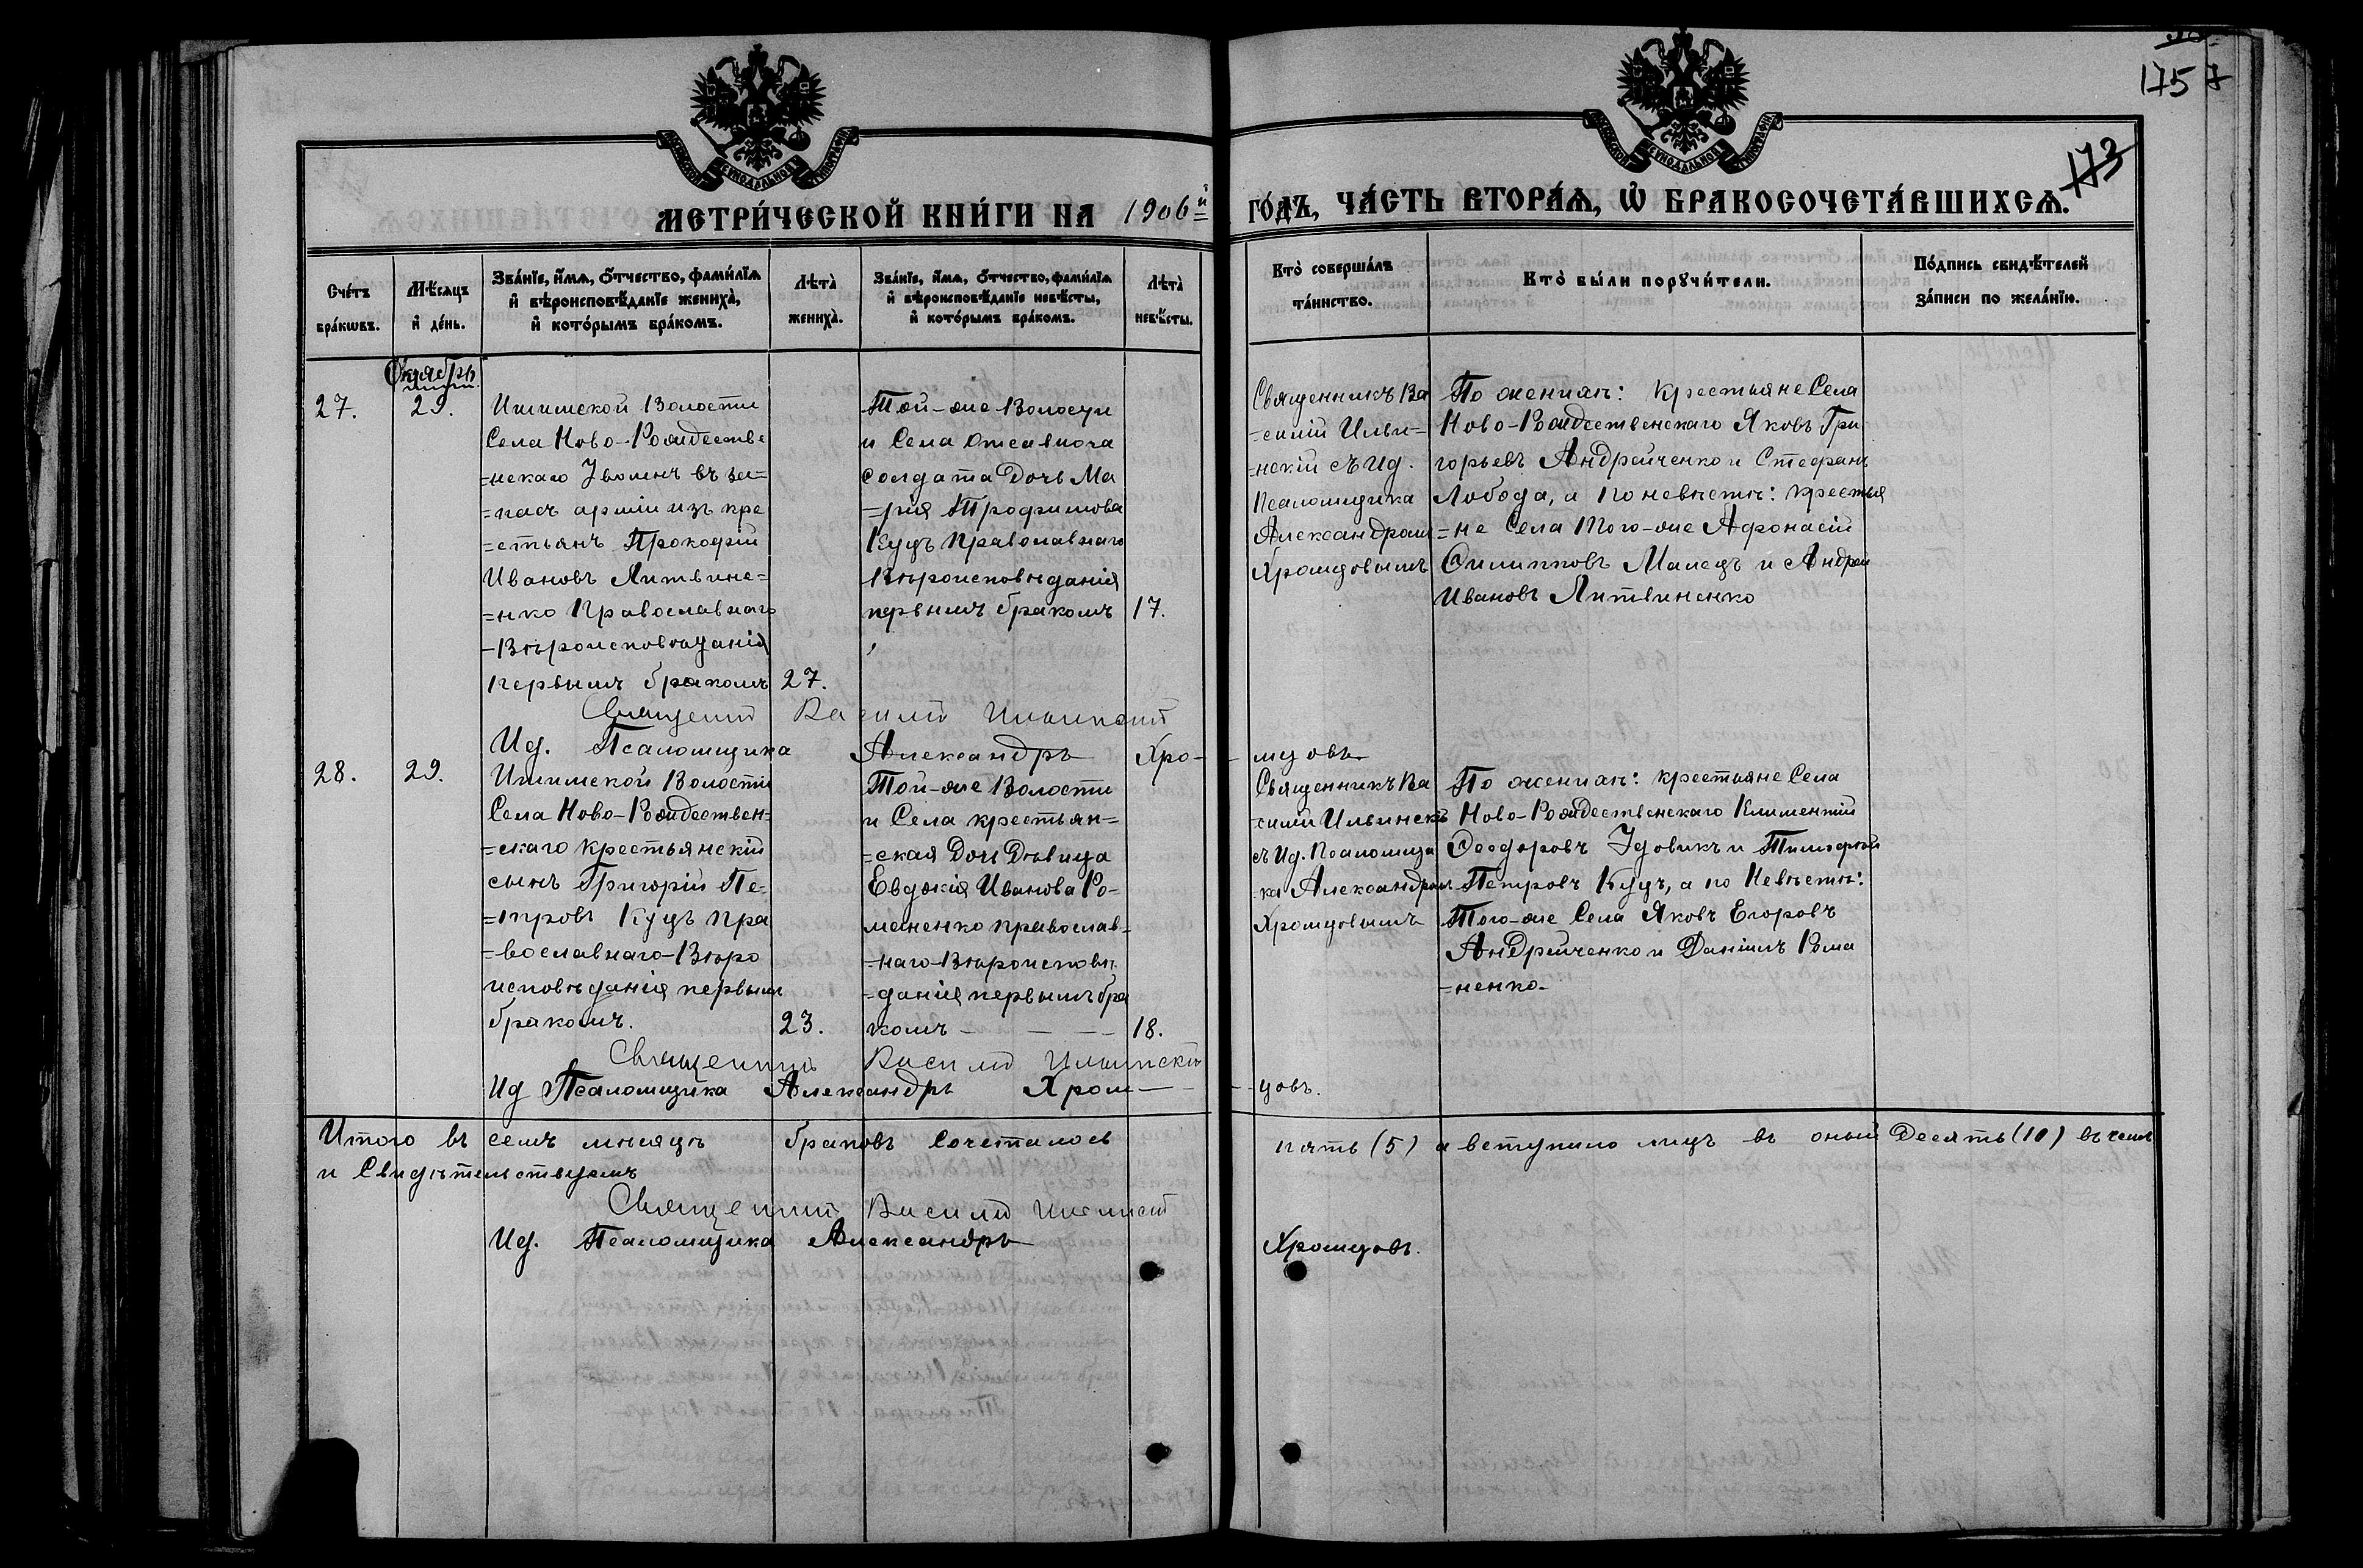 175 7
173
МЕТРИ́ЧЕСКОЙ КНИ́ГИ НА 1906й
ГО́ДЪ, ЧА́СТЬ ВТОРА́Ѧ, Ѡ҆ БРАКОСОЧЕТА́ВШИХСѦ.
Сче́тъ бра́кѡвъ.
Мѣ́сѧцъ и҆ де́нь.
Зва́нїе, и҆́мѧ, ѻ҆́тчество, фами́лїѧ
и҆ вѣроисповѣ́данїе жениха̀,
и҆ кото́рымъ бра́комъ.
Лѣта̀ жениха̀.
Зва́нїе, и҆́мѧ, ѻ҆́тчество, фами́лїѧ
и҆ вѣроисповѣ́данїе невѣ́сты,
и҆ кото́рымъ бра́комъ.
Лѣта̀ невѣ́сты.
Кто̀ соверша́лъ
та́инство.
Кто̀ бы́ли порꙋчи́тели.
По́дпись свидѣ́телей
за́писи по жела́нїю.
Октябрь
27.
29.
Ишимской Волости
Села Ново-Рождестве
=нскаго Уволенъ въ за=
=пасъ арміи изъ кре
=стьянъ Прокофій
Ивановъ Литвине=
=нко Православнаго
-Вѣроисповѣданія
первымъ бракомъ
27.
Той-же Волости
и Села Отставнога
солдата Дочь Ма
=рія Трофимова
Куцъ Православнаго
Вѣроисповѣданія
первымъ бракомъ
17.
Священникъ Ва
=силій Ильи=
=нскій съ Ид.
Псаломщика
Александромъ
Хромцовымъ
По женихѣ: крестьяне Села
Ново-Рождественскаго Яковъ Гри
горьевъ Андрейченко и Стефанъ
Лобода, а по невѣстѣ: крестья
=не Села Того-же Афонасій
Филипповъ Малецъ и Андрей
Ивановъ Литвиненко
Священникъ Василій Ильинскій
Ид. Псаломщика Александръ Хро-
мцовъ
28.
29.
Ишимской Волости
Села Ново-Рождествен=
=скаго крестьянскій
сынъ Григорій Пе=
=тровъ Куцъ Пра
=вославнаго-Вѣро
исповѣданія первымъ
бракомъ.
23.
Той-же Волости
и Села крестьян=
=ская Дочь Дѣвица
Евдокія Иванова Ро-
маненко православ=
=наго-Вѣроисповѣ
=данія первымъ бра
комъ - - - -
18.
Священникъ Ва
=силій Ильинскій
съ Ид. Псаломщи
=ка Александромъ
Хромцовымъ
По женихѣ: крестьяне Села
Ново-Рождественскаго Климентій
Феодоровъ Удовикъ и Тимофей
Петровъ Куцъ, а по Невѣстѣ:
Того-же Села Яковъ Егоровъ
Андрейченко и Даніилъ Рома
=ненко-
Священникъ Василій Ильинскій
Ид Псаломщика Александръ Хром-
-цовъ.
Итого въ семъ мѣсяцѣ браковъ Сочеталось пять (5) а вступило лицъ въ оный Десять (10) въ чемъ
и Свидѣтельствуемъ
Священникъ Василій Ильинскій
Ид. Псаломщика Александръ Хромцовъ.